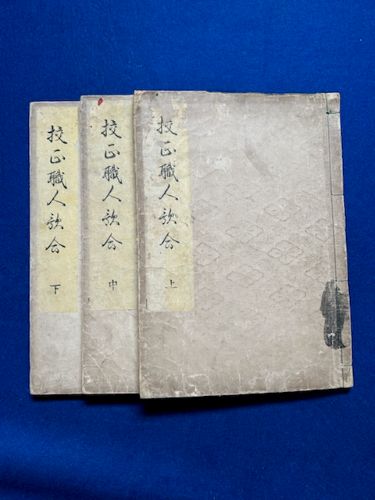 校正職人歌合
上
校正職人歌合
中
校正職人歌合
下